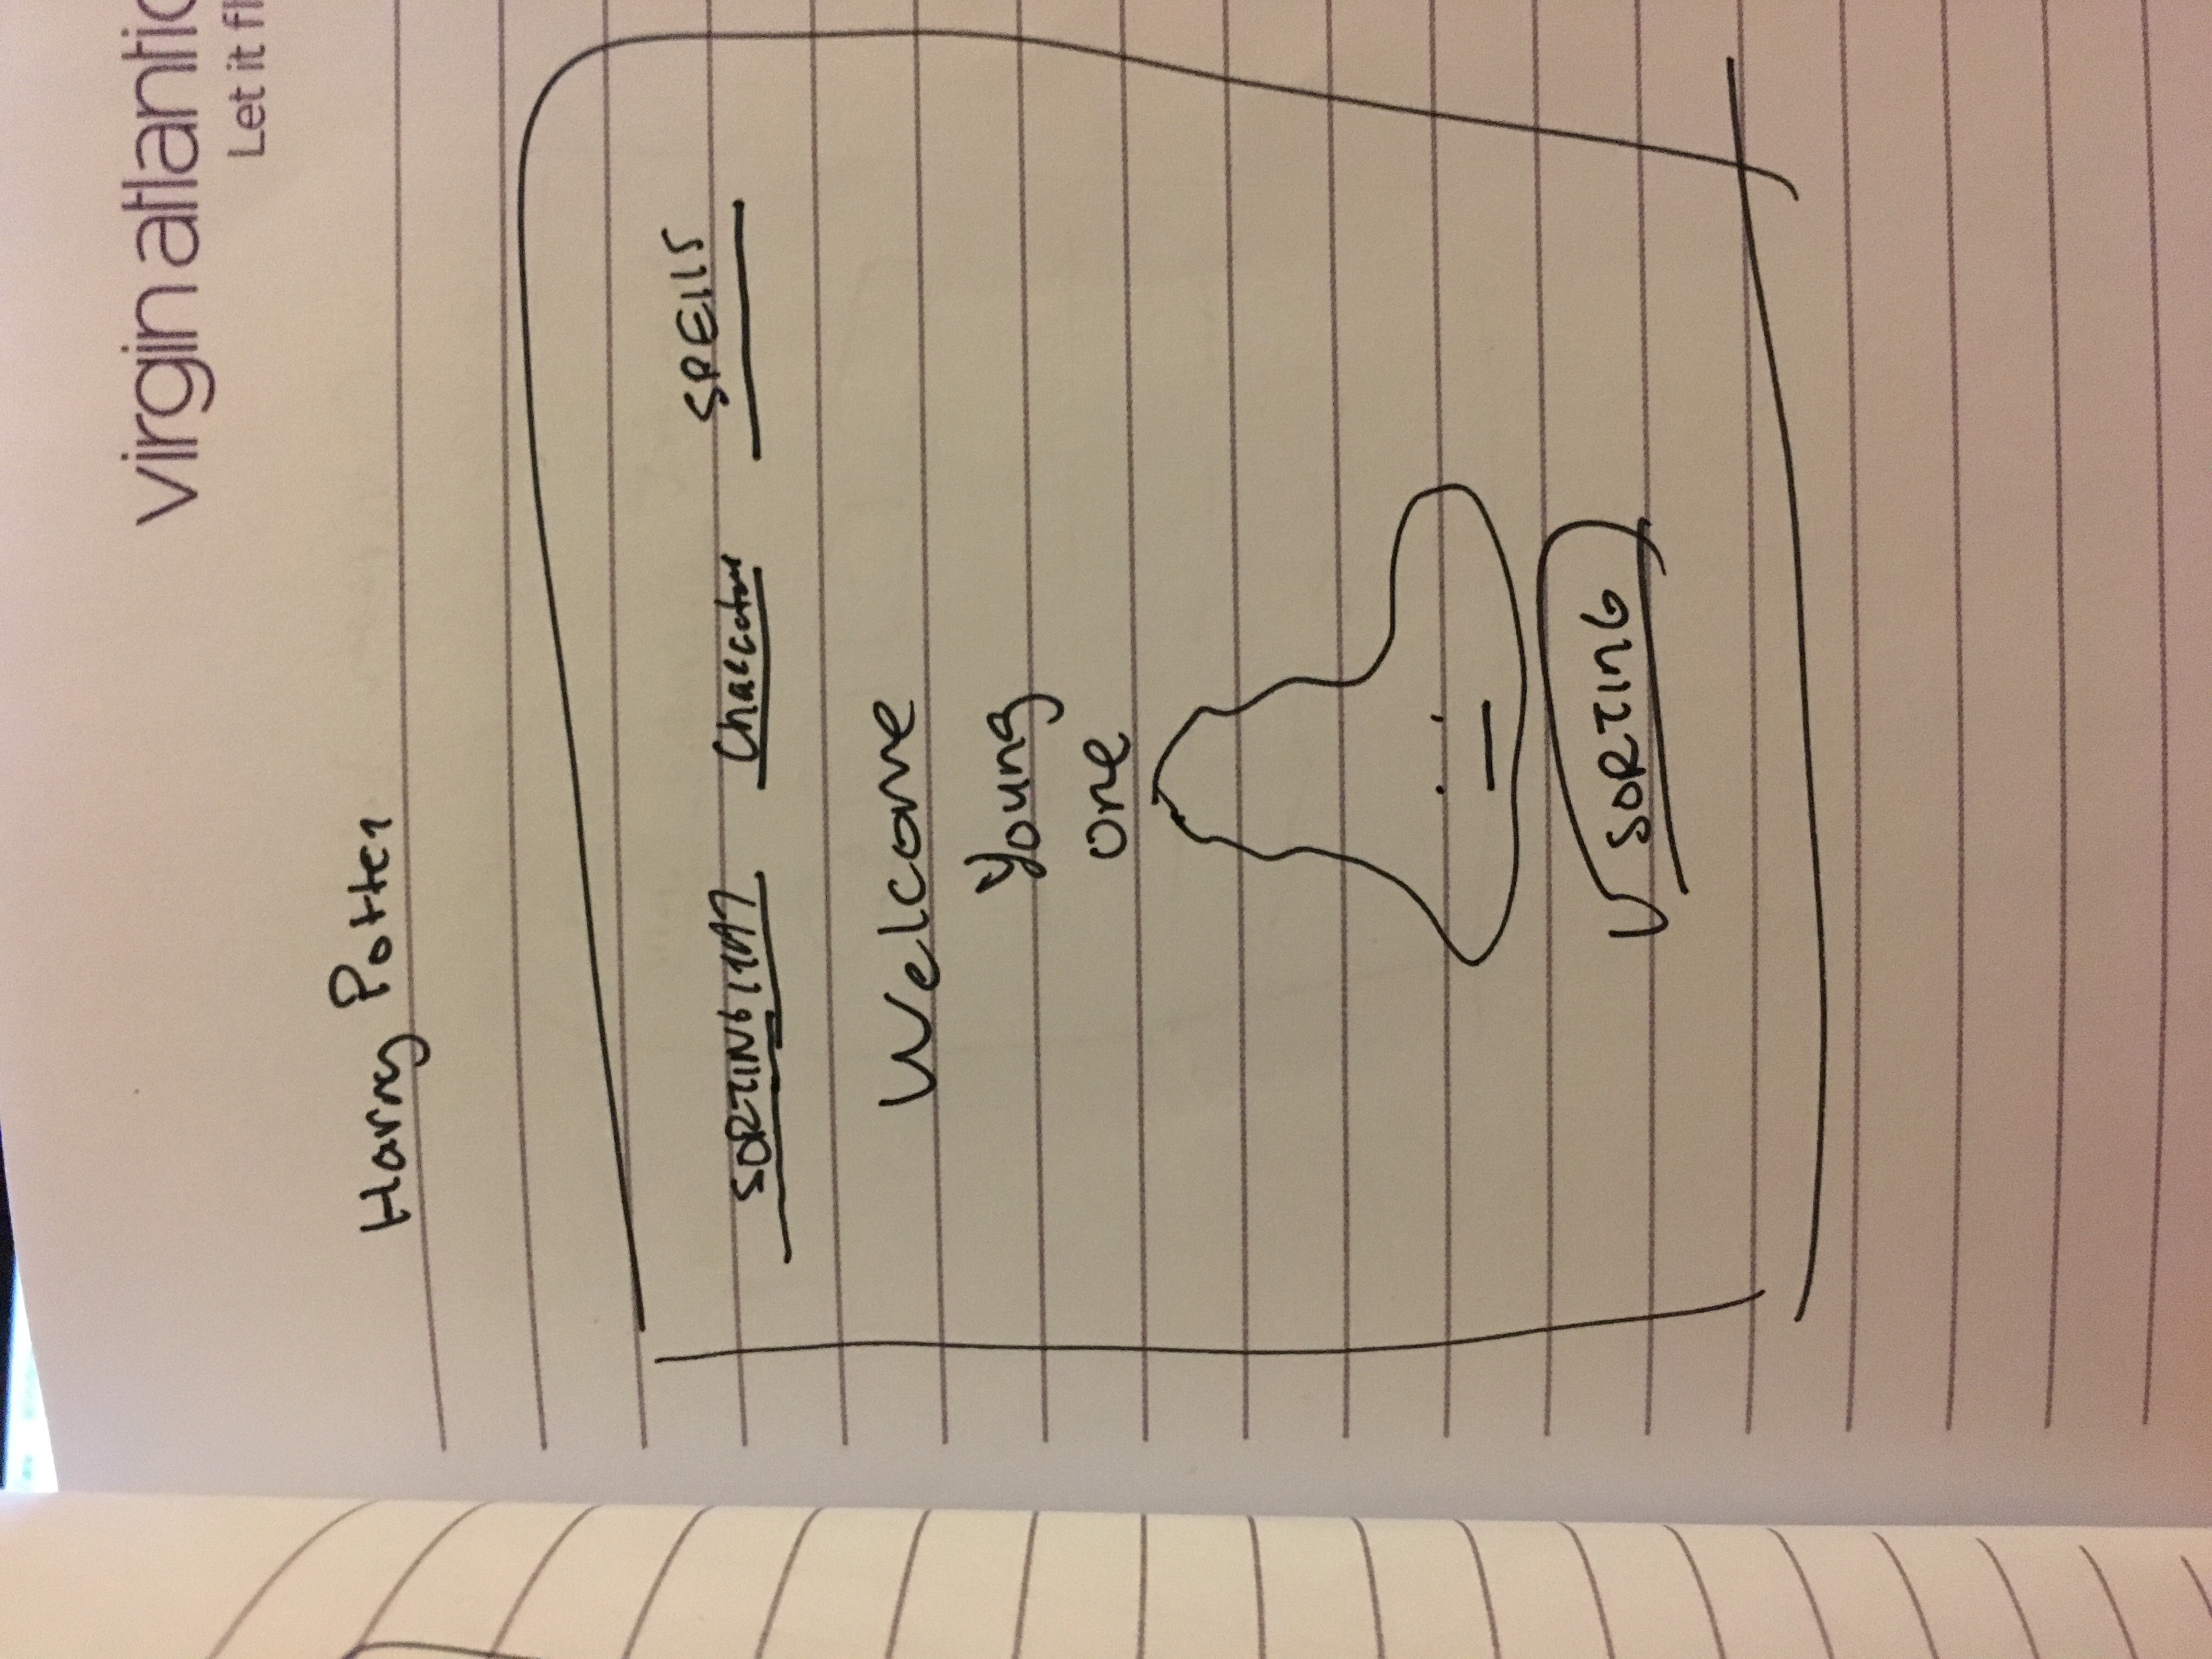 virgin atlantic
Let it fl
Harry Potter
SORTING HAT Characters SPEllS
Welcome
Young
one
SORTING